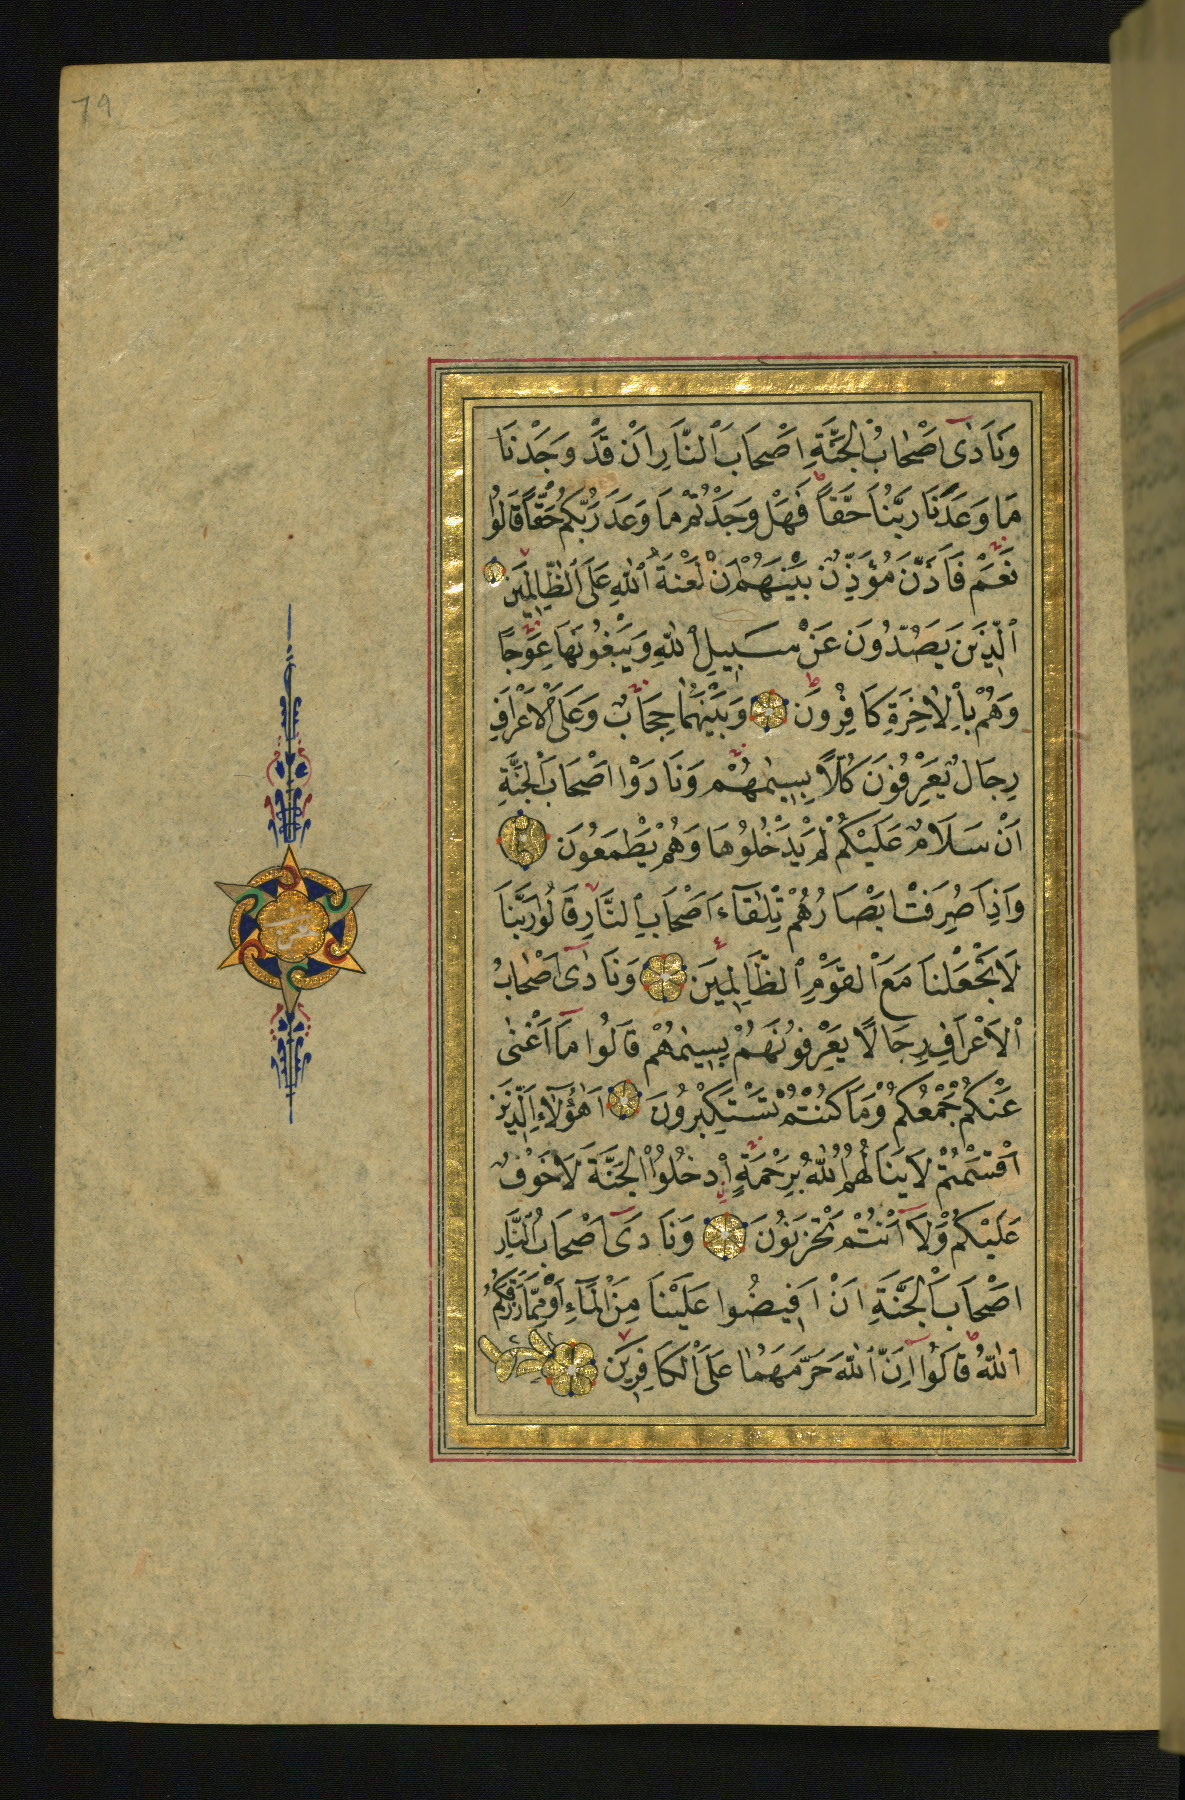 79
وَنَادٰٓى اَصْحَابُ الْجَنَّةِ اَصْحَابَ النَّارِ اَنْ قَدْ وَجَدْنَا
مَا وَعَدَنَا رَبُّنَا حَقًّا فَهَلْ وَجَدْتُمْ مَا وَعَدَ رَبُّكُمْ حَقًّا قَالُوا
نَعَمْ فَاَذَّنَ مُؤَذِّنٌ بَيْنَهُمْ اَنْ لَعْنَةُ اللّٰهِ عَلَى الظَّالِمِينَ
اَلَّذِينَ يَصُدُّونَ عَنْ سَبِيلِ اللّٰهِ وَيَبْغُونَهَا عِوَجًا
وَهُمْ بِالْاٰخِرَةِ كَافِرُونَ وَبَيْنَهُمَا حِجَابٌ وَعَلَى الْاَعْرَافِ
رِجَالٌ يَعْرِفُونَ كُلًّا بِسِيمٰهُمْ وَنَادَوْا اَصْحَابَ الْجَنَّةِ
اَنْ سَلَامٌ عَلَيْكُمْ لَمْ يَدْخُلُوهَا وَهُمْ يَطْمَعُونَ
وَاِذَا صُرِفَتْ اَبْصَارُهُمْ تِلْقَآءَ اَصْحَابِ النَّارِ قَالُوا رَبَّنَا
لَا تَجْعَلْنَا مَعَ الْقَوْمِ الظَّالِمِينَ وَنَادٰٓى اَصْحَابُ
الْاَعْرَافِ رِجَالًا يَعْرِفُونَهُمْ بِسِيمٰهُمْ قَالُوا مَٓا اَغْنٰى
عَنْكُمْ جَمْعُكُمْ وَمَا كُنْتُمْ تَسْتَكْبِرُونَ اَهٰٓؤُلَٓاءِ الَّذِينَ
اَقْسَمْتُمْ لَا يَنَالُهُمُ اللّٰهُ بِرَحْمَةٍ اُدْخُلُوا الْجَنَّةَ لَا خَوْفٌ
عَلَيْكُمْ وَلَٓا اَنْتُمْ تَحْزَنُونَ وَنَادَٓى اَصْحَابُ النَّارِ
اَصْحَابَ الْجَنَّةِ اَنْ اَفِيضُوا عَلَيْنَا مِنَ الْمَآءِ اَوْ مِمَّا رَزَقَكُمُ
اللّٰهُ قَالُٓوا اِنَّ اللّٰهَ حَرَّمَهُمَا عَلَى الْكَافِرِينَ